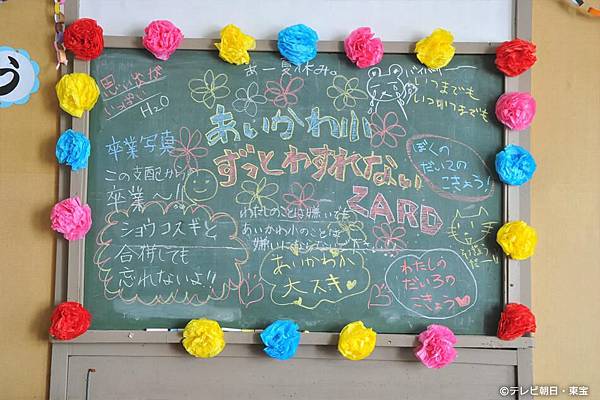 思い出が
いっぱい
H₂O
あー夏休み。
バイバイ
いつまでも
いつがつまでも
卒業写真
あいかわ小
ずっとわすれない
ZARD
ぼくの
だい2の
こきょう!
この支配からの
卒業〜!!
ショウコスギと
合併しても
忘れないよ!!
わたしのことは嫌いでも
あいかわ小のことは
嫌いにならないで下さい!!
あいかわ小
大スキ
わたしの
だいろの
こきょう
う
©テレビ朝日・東宝